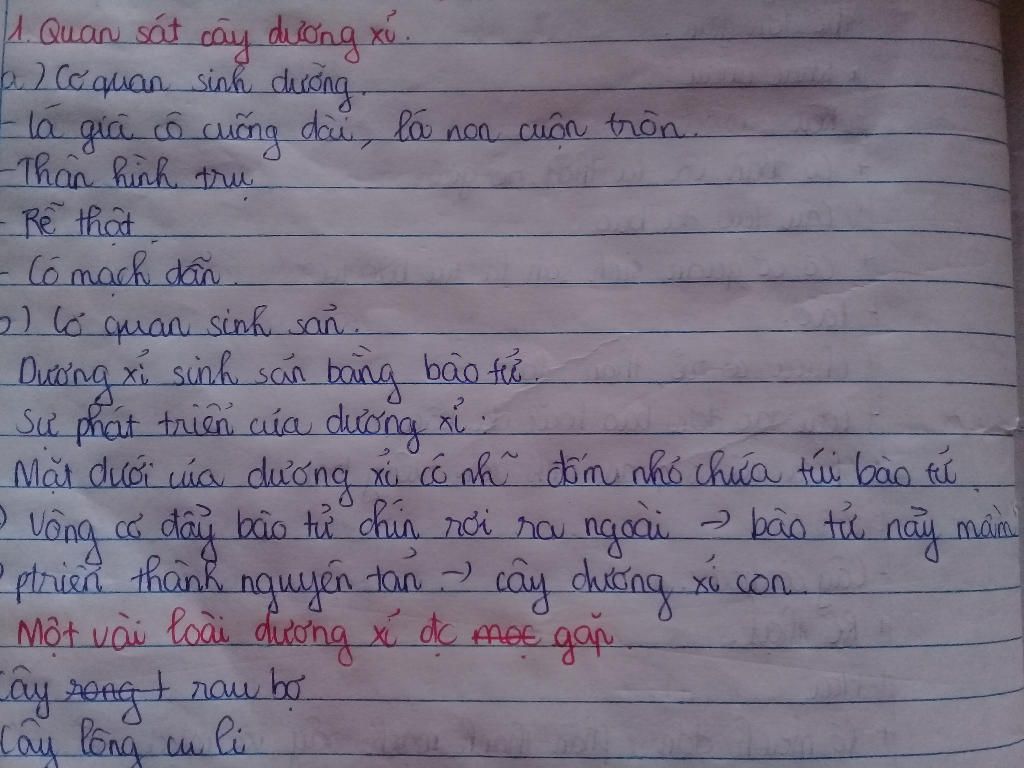 1. Quan sát cây dương xỉ.
a) Cơ quan sinh dưỡng.
- lá già có cuống dài, lá non cuộn tròn.
- Thân hình trụ
- Rễ thật
- Có mạch dẫn.
b) Cơ quan sinh sản.
Dương xỉ sinh sản bằng bào tử.
Sự phát triển của dương xỉ:
Mặt dưới của dương xỉ có nh~ đốm nhỏ chứa túi bào tử.
Vòng cơ đẩy bào tử chín rơi ra ngoài → bào tử nảy mầm
ptriển thành nguyên tản → cây dương xỉ con.
Một vài loài dương xỉ đc mọc gặp.
Cây rong t rau bợ
Cây lông cu li